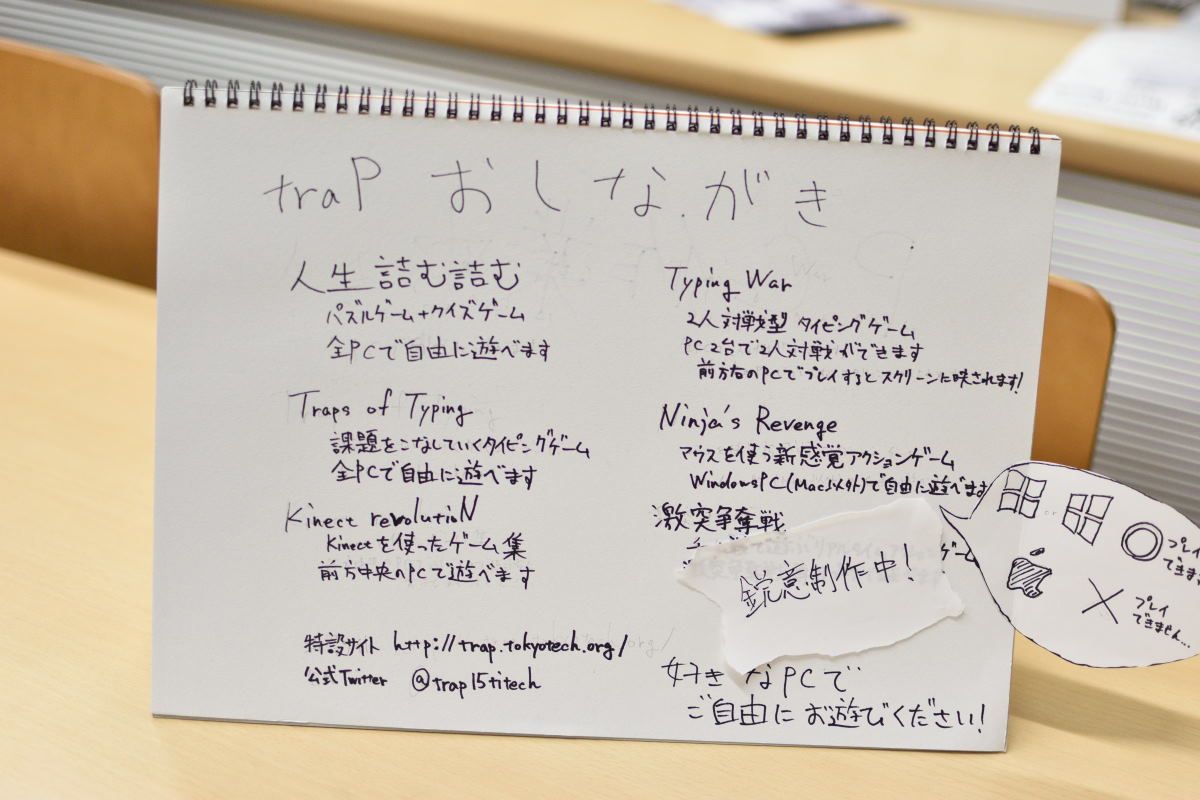 traP おしながき
人生詰む詰む
パズルゲーム+クイズゲーム
全PCで自由に遊べます
Traps of Typing
課題をこなしていくタイピングゲーム
全PCで自由に遊べます
Kinect revolutioN
Kinectを使ったゲーム集
前方中央のPCで遊べます
特設サイト http://trap.tokyotech.org/
公式Twitter @trap15titech
Typing War
2人対戦型 タイピングゲーム
PC2台で2人対戦ができます
前方右のPCでプレイするとスクリーンに映されます!
Ninja's Revenge
マウスを使う新感覚アクションゲーム
WindowsPC(Mac以外)で自由に遊べます
激突争奪戦
ゲーム
鋭意制作中!
好きなPCで
ご自由にお遊びください!
or
○ プレイ
できます
× プレイ
できません...